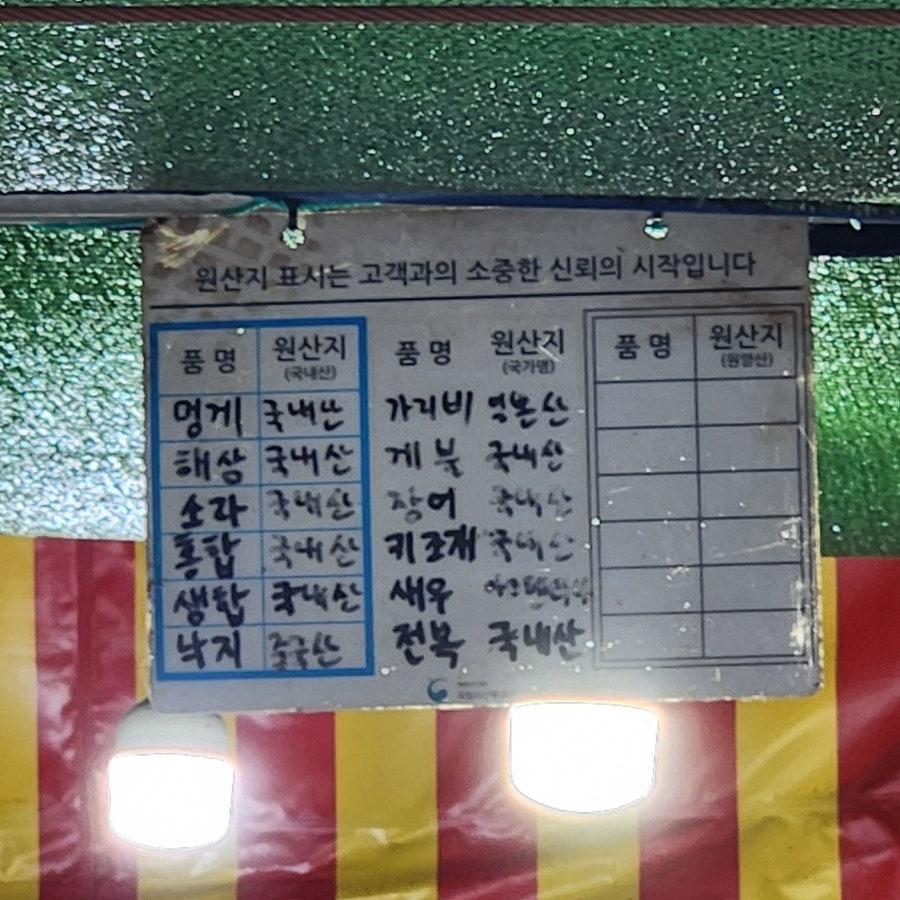 원산지 표시는 고객과의 소중한 신뢰의 시작입니다
품명 원산지 품명 원산지 품명 원산지
(국내산) (국가명) (원양산)
멍게 국내산 가리비 일본산
해삼 국내산 게불 국내산
소라 국내산 장어 국내산
홍합 국내산 키조개 국내산
생합 국내산 새우
낙지 중국산 전복 국내산